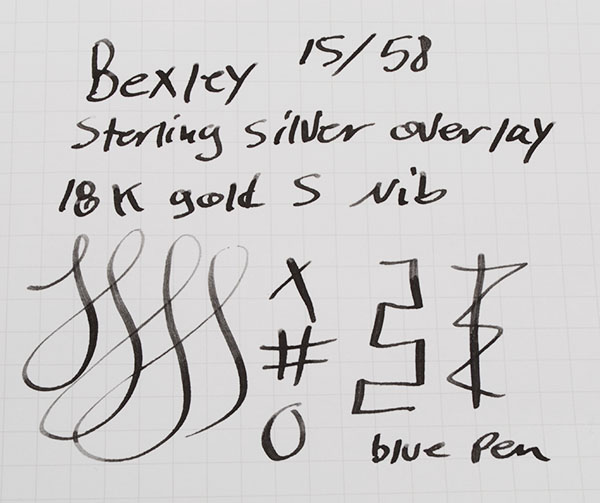 Bexley 15/58
Sterling silver overlay
18K gold S Nib
X
#
O
blue pen